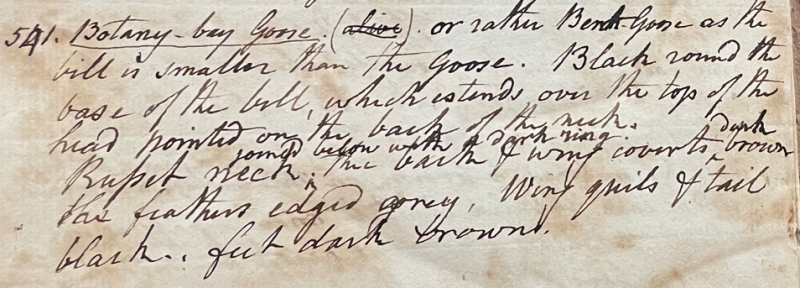 541. Botany-bay Goose. (alive). or rather Bent Goose as the
bill is smaller than the Goose. Black round the
base of the bill, which extends over the top of the
head pointed on the back of the neck.
joined below with a dark ring. dark
Rufset neck; the back & wing coverts brown
the feathers edged grey, Wing quils & tail
black.. feet dark brown.